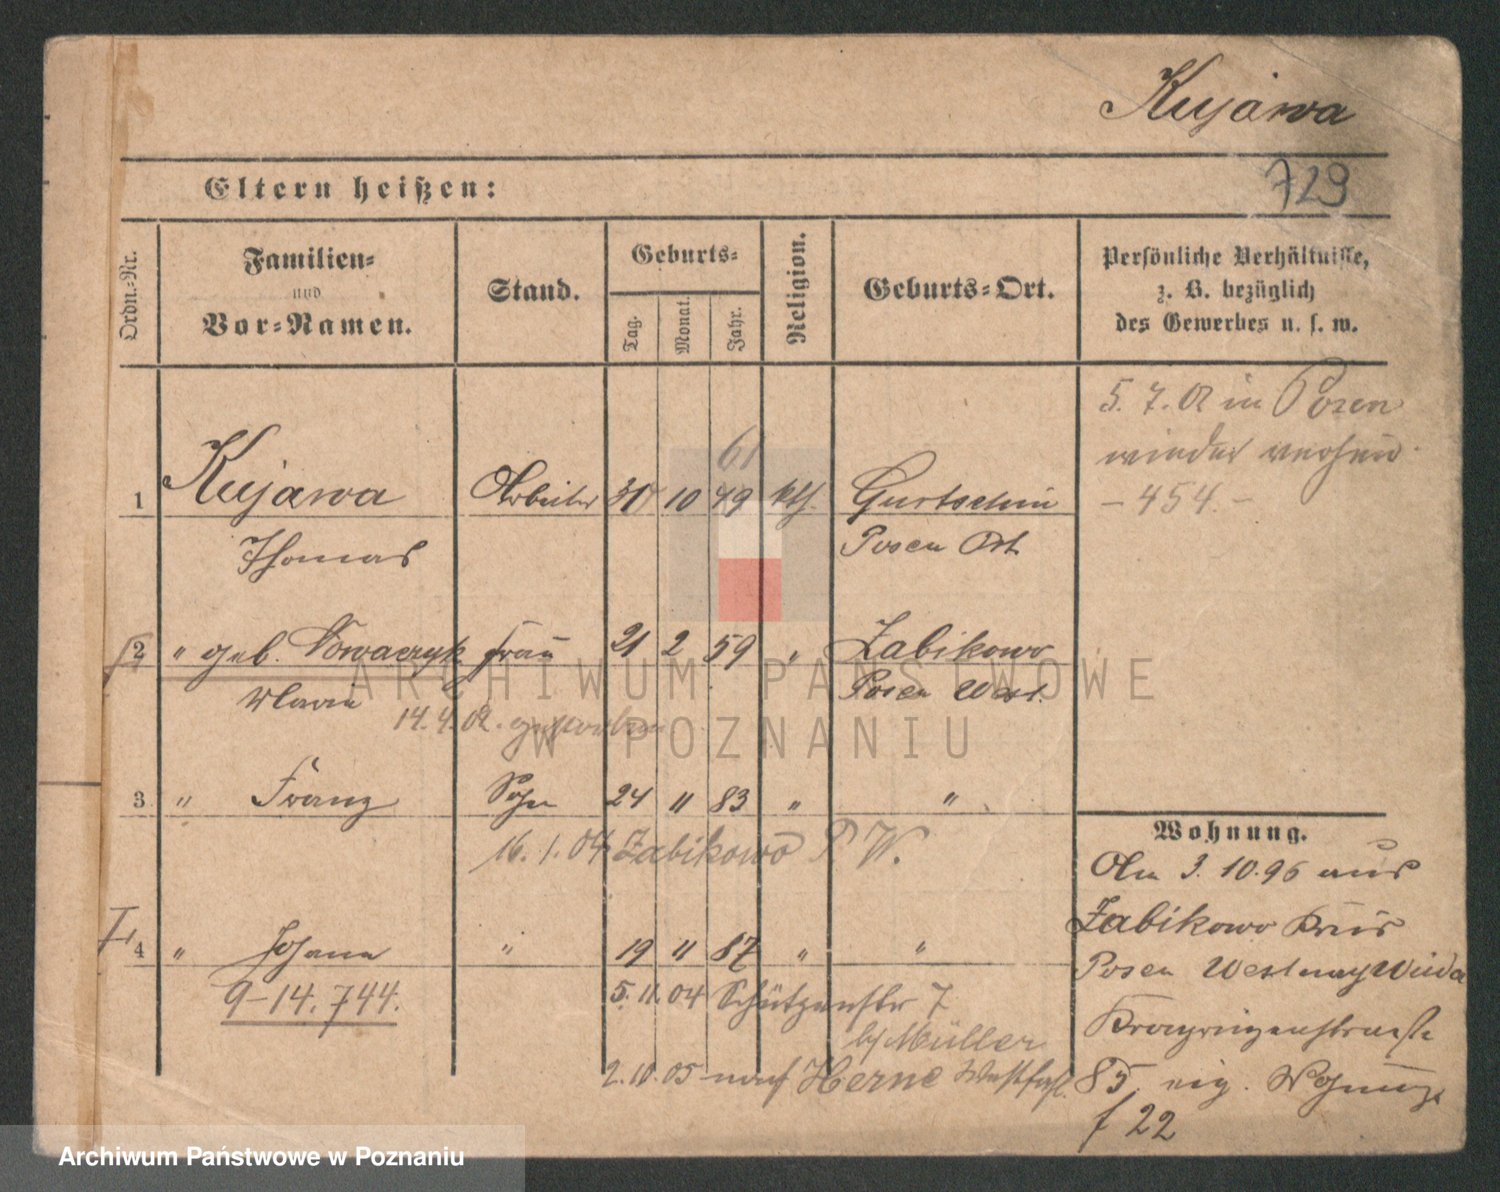 Kujawa
729
Eltern heißen:
Ordn.-Nr.
Familien-
und
Vor-Namen.
Stand.
Geburts-
Tag.
Monat.
Jahr.
Religion.
Geburts-Ort.
Persönliche Verhältnisse,
z. B. bezüglich
des Gewerbes u. s. w.
5. 7. 02 in Posen
wieder
- 454. -
61
1 Kujawa Arbeiter 10 79 kth. Gurtschin
Thomas Posen Ost
2 " geb. Nowaczyk Frau 21 2 59 " Zabikowo
Maria Posen West.
14. 4. 02. gestorben
3 " Franz Sohn 24 " 83 " "
16. 1. 04 Zabikowo P. W.
4 " Johann " 19 " 87 " "
9-14. 744.
5. 11. 04 Schützenstr 7
b/ Müller
2. 10. 05 nach Herne Westfal.
Wohnung.
Am 3. 10. 96 aus
Zabikowo Kreis
Posen West nach Wilda
Kronprinzenstrasse
85. eig. Wohnung
f 22
ARCHIWUM PAŃSTWOWE
W POZNANIU
Archiwum Państwowe w Poznaniu